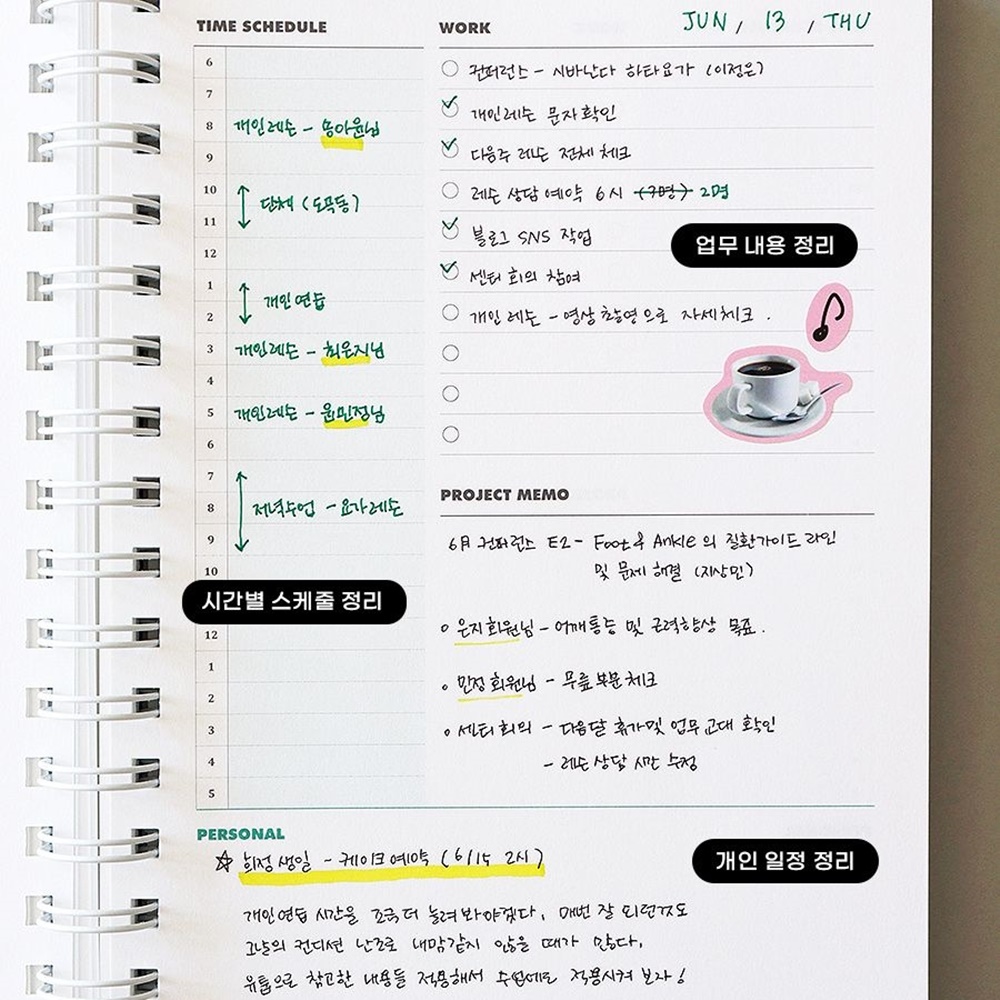 JUN / 13 / THU
TIME SCHEDULE
6
7
8 개인레슨 - 송아윤님
9
10
단체 (도곡동)
11
12
1
개인연습
2
3 개인레슨 - 최은지님
4
5 개인레슨 - 윤민정님
6
7
8 저녁수업 - 요가레슨
9
10
시간별 스케줄 정리
12
1
2
3
4
5
WORK
컨퍼런스 - 시바난다 하타요가 (이정은)
개인레슨 문자확인
다음주 레슨 전체 체크
레슨 상담 예약 6시 (7명) 2명
블로그 SNS 작업
업무 내용 정리
센터 회의 참여
개인 레슨 - 영상촬영으로 자세체크.
PROJECT MEMO
6月 컨퍼런스 E2- Foot & Ankle의 질환가이드라인
및 문제 해결 (지상민)
은지회원님 - 어깨통증 및 근력향상 목표.
민정 회원님 - 무릎부분체크
센터 회의 - 다음달 휴가및 업무교대 확인
- 레슨 상담 시간 수정
PERSONAL
☆ 희정 생일 - 케이크예약 (6/15 2시)
개인 일정 정리
개인연습 시간을 조금 더 늘려봐야겠다. 매번 잘 되던것도
그날의 컨디션 난조로 내맘같지 않을 때가 많다.
유튭으로 참고한 내용들 적용해서 수업에도 적용시켜 보자!